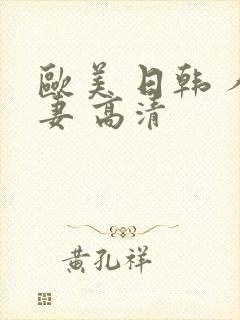 歐美 日韩 人
妻 高清
黄孔祥